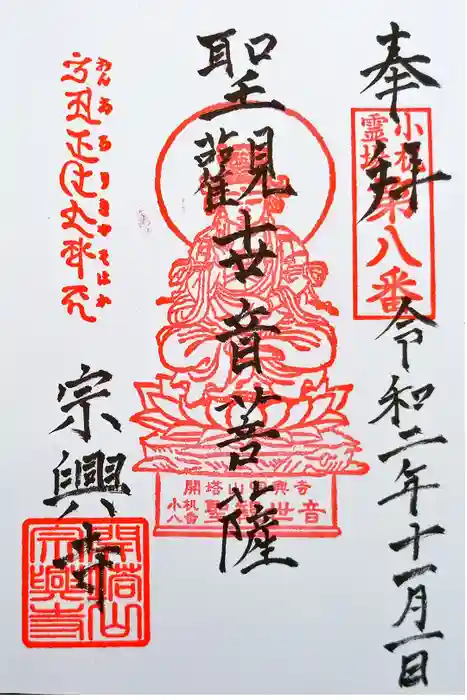 奉拝
小机
霊場
第八番
令和二年十一月一日
聖観世音菩薩
開塔山宗興寺
小机
八番
聖観世音
おんあろりきやそはか
宗興寺
開塔山
宗興寺